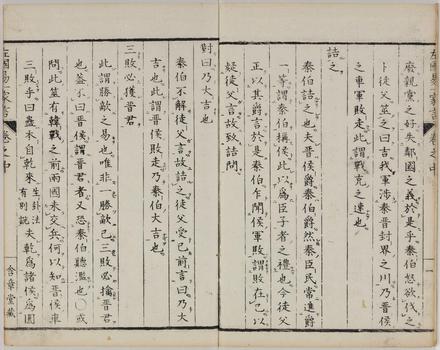 廢親黨之好失鄰國之義於是乎秦伯怒欲伐之
卜徒父筮之曰吉我軍涉秦晉封界之川乃晉侯
之車軍敗走此謂戰克之速也
詰之
秦伯詰之也夫晉侯爵秦伯爵然秦臣民常進爵
一等謂秦伯稱侯此以爲臣子者之禮也今徒父
正以其爵言於是秦伯乍聞侯軍敗謂敗在己以
疑徒父言故致詰問
對曰乃大吉也
秦伯不解徒父言故詰之徒父受己前言曰乃大
吉也此謂晉侯敗走乃秦伯大吉也
三敗必獲晉君
此謂勝敵之易也唯非一勝敵已三敗必擒晉君
也蓋不曰晉侯謂晉君者又恐秦伯聽濫也○或
問此筮有韓戰之前兩國未交兵何以知晉侯車
三敗乎曰蠱本自乾來生卦法有別説夫乾爲諸侯爲圜
左國易一家言
卷之中
含章堂藏